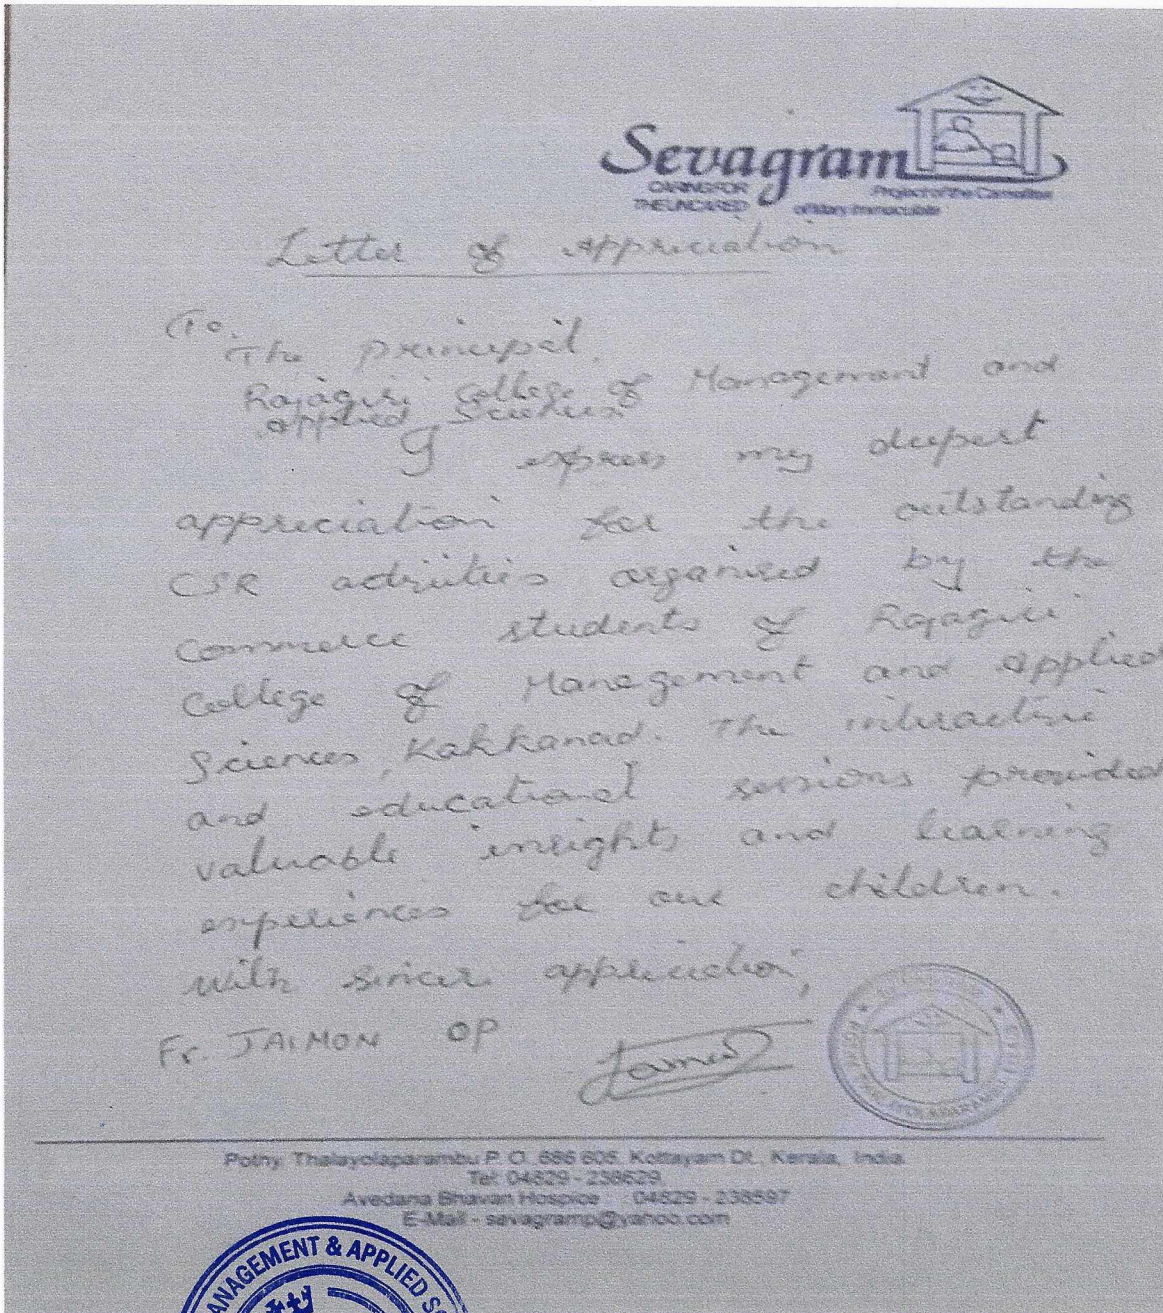 Sevagram
CARING FOR
THE UNCARED
Project of the Carmelites
of Mary Immaculate
Letter of Appriciation
To,
The principal,
Rajagiri College of Management and
Applied Sciences
I express my deepest
appreciation for the outstanding
CSR activities organised by the
Commerce students of Rajagiri
College of Management and Applied
Sciences, Kakkanad. The interactive
and educational sessions provided
valuable insights and learning
experiences for our children.
with sincere appreciation,
Fr. JAIMON OP
Pothy, Thalayolaparambu P. O. 686 605, Kottayam Dt., Kerala, India.
Tel: 04829 - 238629,
Avedana Bhavan Hospice 04829 - 238597
E-Mail - sevagramp@yahoo.com
ANAGEMENT & APPLIED SC